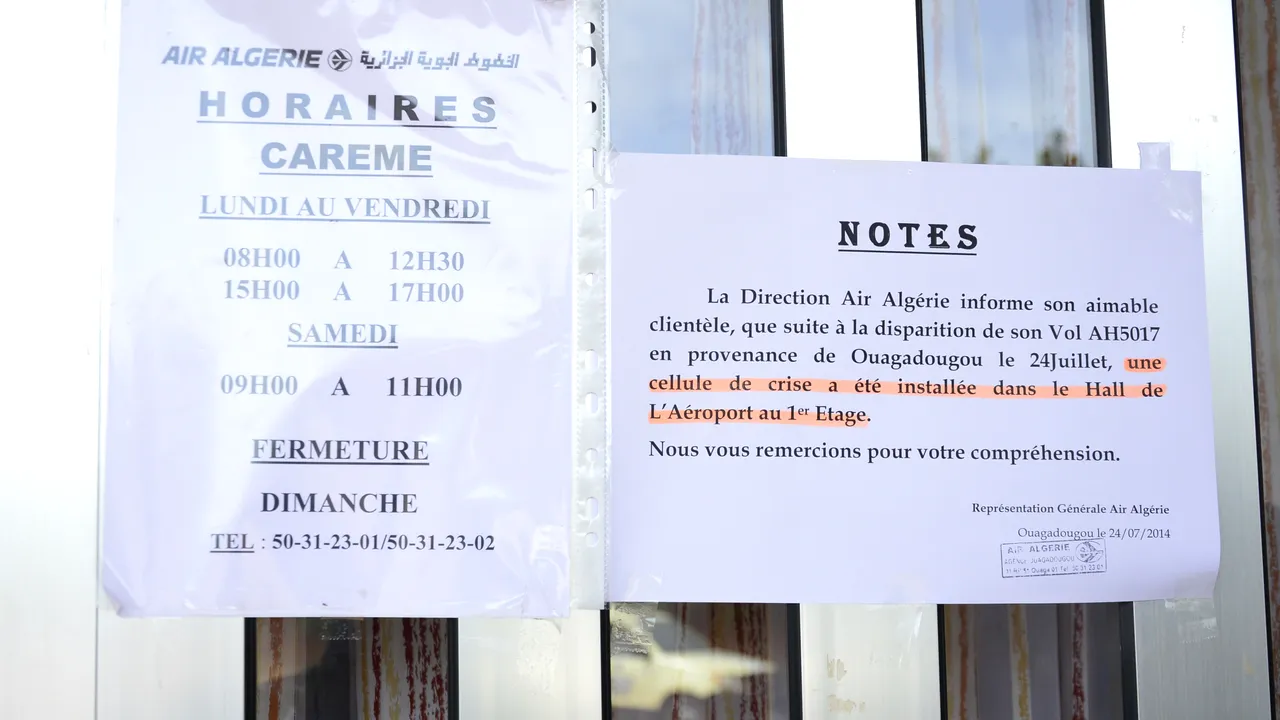 AIR ALGERIE الخطوط الجوية الجزائرية
HORAIRES
CAREME
LUNDI AU VENDREDI
08H00 A 12H30
15H00 A 17H00
SAMEDI
09H00 A 11H00
FERMETURE
DIMANCHE
TEL : 50-31-23-01/50-31-23-02
NOTES
La Direction Air Algérie informe son aimable
clientèle, que suite à la disparition de son Vol AH5017
en provenance de Ouagadougou le 24Juillet, une
cellule de crise a été installée dans le Hall de
L’Aéroport au 1er Etage.
Nous vous remercions pour votre compréhension.
Représentation Générale Air Algérie
Ouagadougou le 24/07/2014
AIR ALGERIE
OUAGADOUGOU
Ouaga 01 Tel. 31 23 01